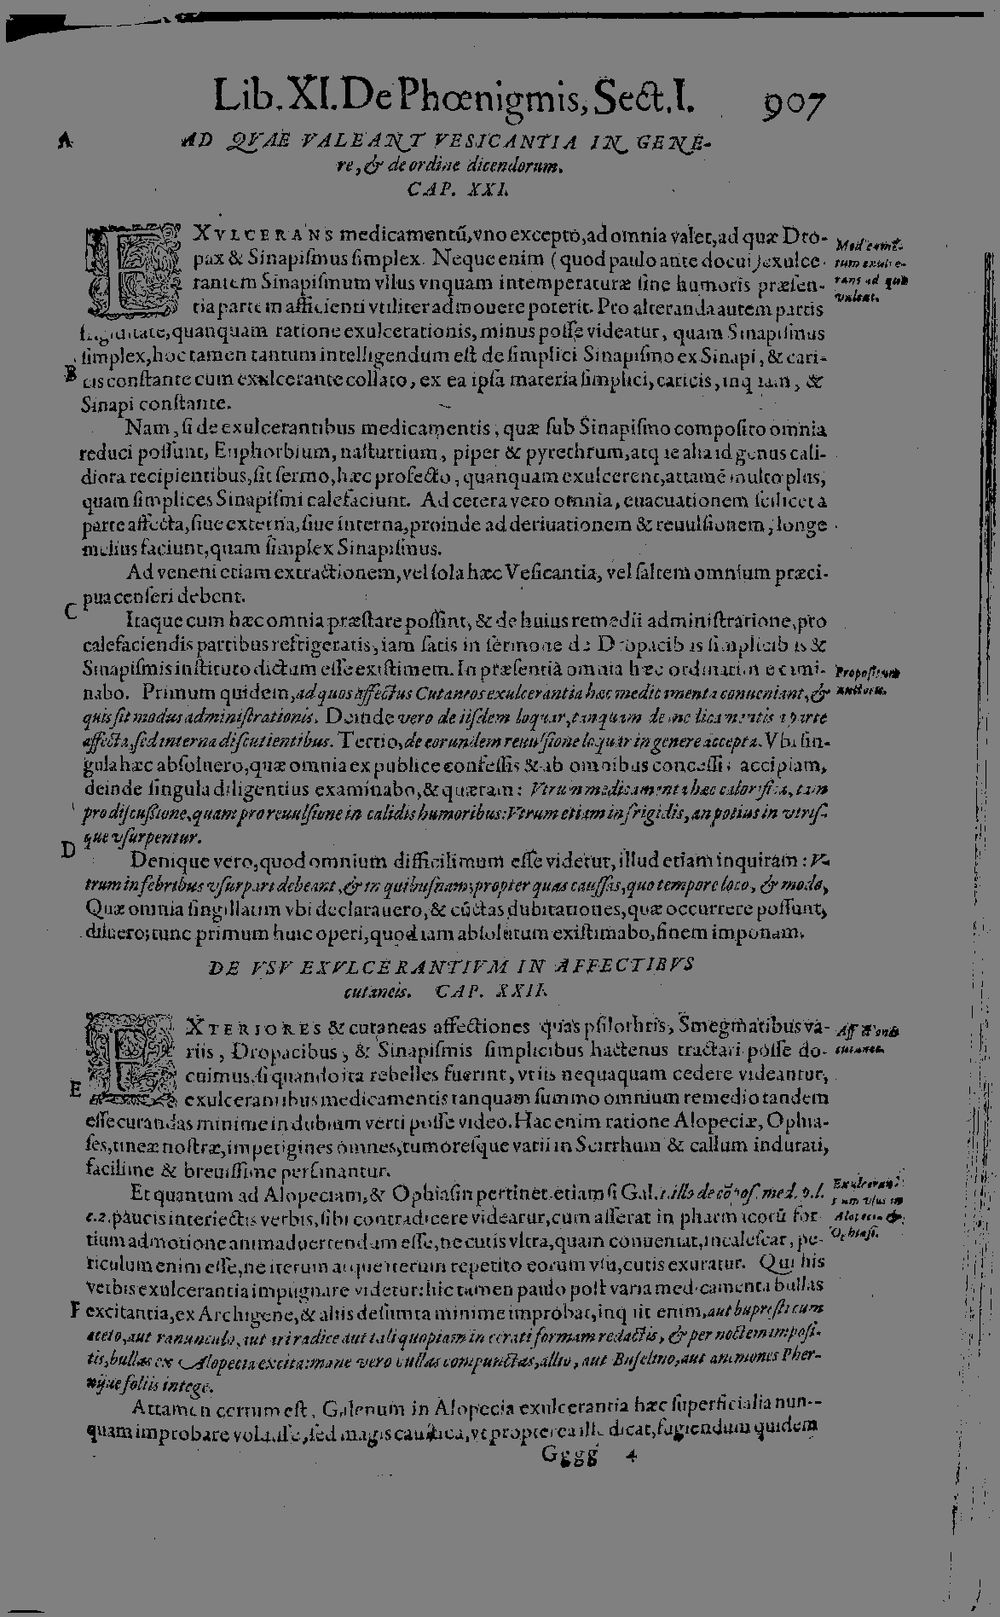 Lib. XI. De Phœnigmis, Sect. I. 907
A AD QVAE VALEANT VESICANTIA IN GENE-
re, & de ordine dicendorum.
CAP. XXI.
EXVLCERANS medicamentũ, vno excepto, ad omnia valet, ad quæ Dro-
pax & Sinapiſmus ſimplex. Neque enim (quod paulo ante docui) exulce-
rantem Sinapiſmum vllus vnquam intemperaturæ ſine humoris præſen-
tia parte in afficienti vtiliter admouere poterit. Pro alteranda autem partis
frigiditate, quanquam ratione exulcerationis, minus poſſe videatur, quam Sinapiſmus
ſimplex, hoc tamen tantum intelligendum eſt de ſimplici Sinapiſmo ex Sinapi, & cari-
B cis conſtante cum exulcerante collato, ex ea ipſa materia ſimplici, caricis, inquam, &
Sinapi conſtante.
Nam, ſi de exulcerantibus medicamentis, quæ ſub Sinapiſmo compoſito omnia
reduci poſſunt, Euphorbium, naſturtium, piper & pyrethrum, atque alia id genus cali-
diora recipientibus, ſit ſermo, hæc profecto, quanquam exulcerent, attamẽ multo plus,
quam ſimplices Sinapiſmi calefaciunt. Ad cetera vero omnia, euacuationem ſcilicet à
parte affecta, ſiue externa, ſiue interna, proinde ad deriuationem & reuulſionem, longe
melius faciunt, quam ſimplex Sinapiſmus.
Ad veneni etiam extractionem, vel ſola hæc Veſicantia, vel ſaltem omnium præci-
pua cenſeri debent.
C Itaque cum hæc omnia præſtare poſſint, & de huius remedii adminiſtratione, pro
calefaciendis partibus refrigeratis, iam ſatis in ſermone de Dropacibus ſimplicibus &
Sinapiſmis inſtituto dictum eſſe exiſtimem. In præſentià omnia hæc ordinatim exami-
nabo. Primum quidem, ad quos affectus Cutaneos exulcerantia hæc medicamenta conueniant, &
quis ſit modus adminiſtrationis. Deinde vero de iiſdem loquar, tanquam de medicamentis à parte
affecta, ſed interna diſcutientibus. Tertio, de eorundem reuulſione loquar in genere accepta. Vbi ſin-
gula hæc abſoluero, quæ omnia ex publice confeſſis & ab omnibus conceſſis accipiam,
deinde ſingula diligentius examinabo, & quæram: Vtrum medicamenta hæc calorifica, tam
pro diſcuſſione, quam pro reuulſione in calidis humoribus: Vtrum etiam in frigidis, an potius in vtriſ-
que vſurpentur.
D Denique vero, quod omnium difficilimum eſſe videtur, illud etiam inquiram: V-
trum in febribus vſurpari debeant, & in quibuſnam, propter quas cauſſas, quo tempore loco, & modo,
Quæ omnia ſingillatim vbi declarauero, & cũctas dubitationes, quæ occurrere poſſunt,
diluero; tunc primum huic operi, quod iam abſolutum exiſtimabo, finem imponam.
DE VSV EXVLCERANTIVM IN AFFECTIBVS
cutaneis. CAP. XXII.
EXTERIORES & cutaneas affectiones quas pſilothris, Smegmatibus va-
riis, Dropacibus, & Sinapiſmis ſimplicibus hactenus tractari poſſe do-
cuimus, ſi quando ita rebelles fuerint, vt iis nequaquam cedere videantur,
E exulcerantibus medicamentis tanquam ſummo omnium remedio tandem
eſſe curandas minime in dubium verti poſſe video. Hac enim ratione Alopeciæ, Ophia-
ſes, tineæ noſtræ, impetigines omnes, tumoreſque varii in Scirrhum & callum indurati,
facilime & breuiſſime perſanantur.
Et quantum ad Alopeciam, & Ophiaſin pertinet, etiam ſi Gal. 1. illo de cõpoſ. med. ſ. l.
c. 2. paucis interiectis verbis, ſibi contradicere videatur, cum aſſerat in pharmacorũ for-
tium admotione animaduertendum eſſe, ne cutis vltra, quam conueniat, incaleſcat, pe-
riculum enim eſſe, ne iterum atque iterum repetito eorum vſu, cutis exuratur. Qui his
verbis exulcerantia impugnare videtur: hic tamen paulo poſt varia medicamenta bullas
F excitantia, ex Archigene, & aliis deſumta minime improbat, inquit enim, aut bupreſti cum
aceto, aut ranunculo, aut iri radice aut tali quopiam in cerati formam redactis, & per noctem impoſi-
tis, bullas ex Alopecia excita: mane vero bullas compunctas, allio, aut Buſelino, aut ammones Pher-
nijue foliis intege.
Attamen certum eſt, Galenum in Alopecia exulcerantia hæc ſuperficialia nun-
quam improbare voluiſſe, ſed magis cauſtica, vt propterea ille dicat, fugiendum quidem
Gggg 4
Medicamẽ-
tum exulce-
rans ad quæ
valeat.
Propoſitum
auctoris.
Affectiones
cutaneæ.
Exulceran-
tium vſus in
Alopecia &
Ophiaſi.